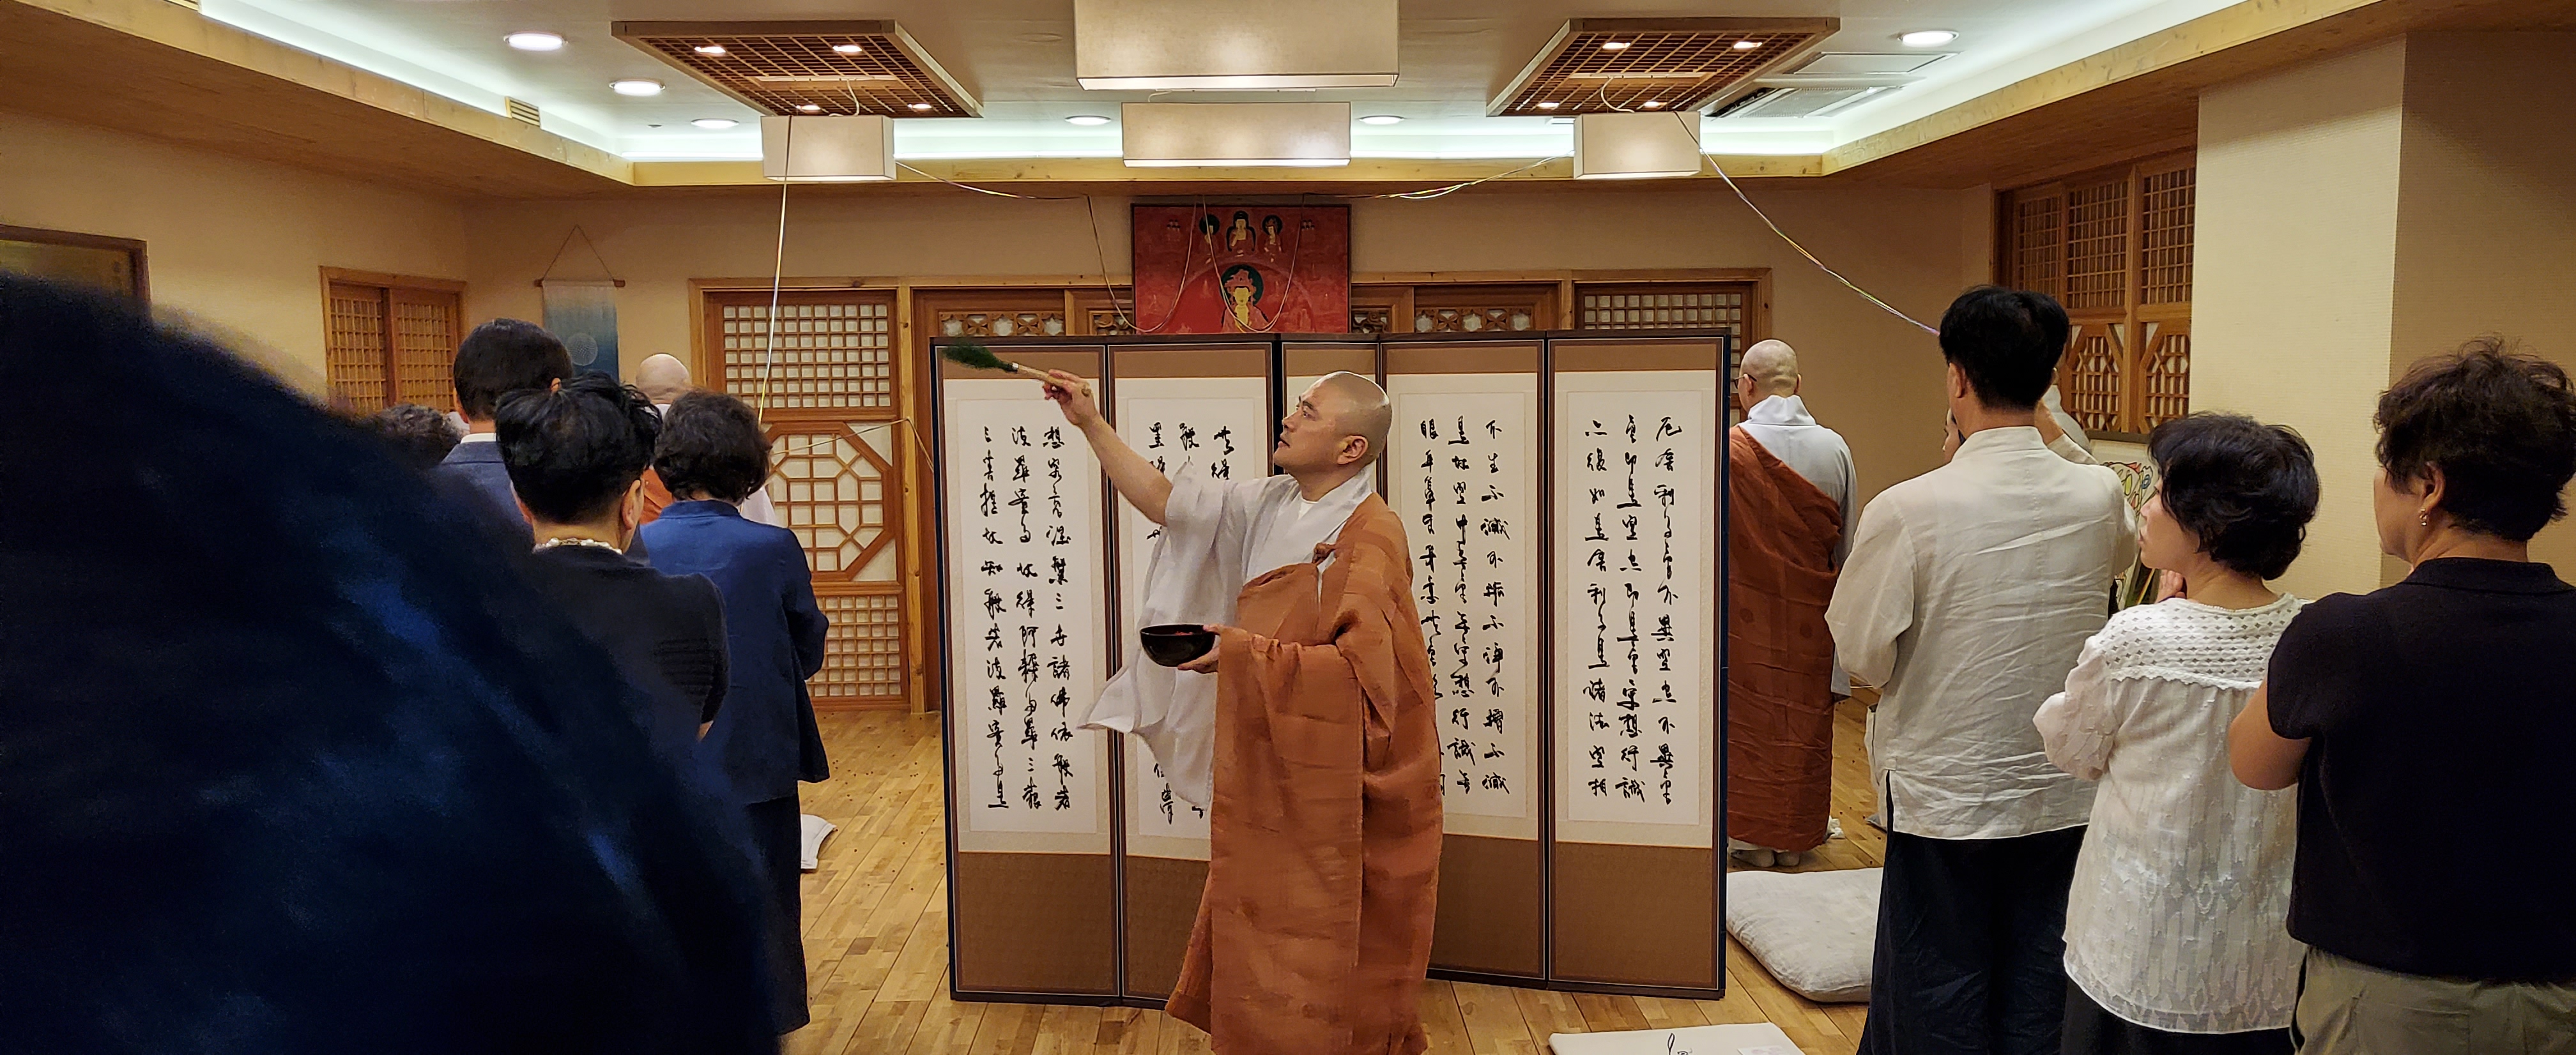 厄舍利子色不異空空不異色
色即是空空即是色受想行識
亦復如是舍利子是諸法空相
不生不滅不垢不淨不增不減
是故空中無色無受想行識無
眼耳鼻舌身意無色
無得
般
罣
想究竟涅槃三世諸佛依般若
波羅蜜多故得阿耨多羅三藐
三菩提故知般若波羅蜜多是